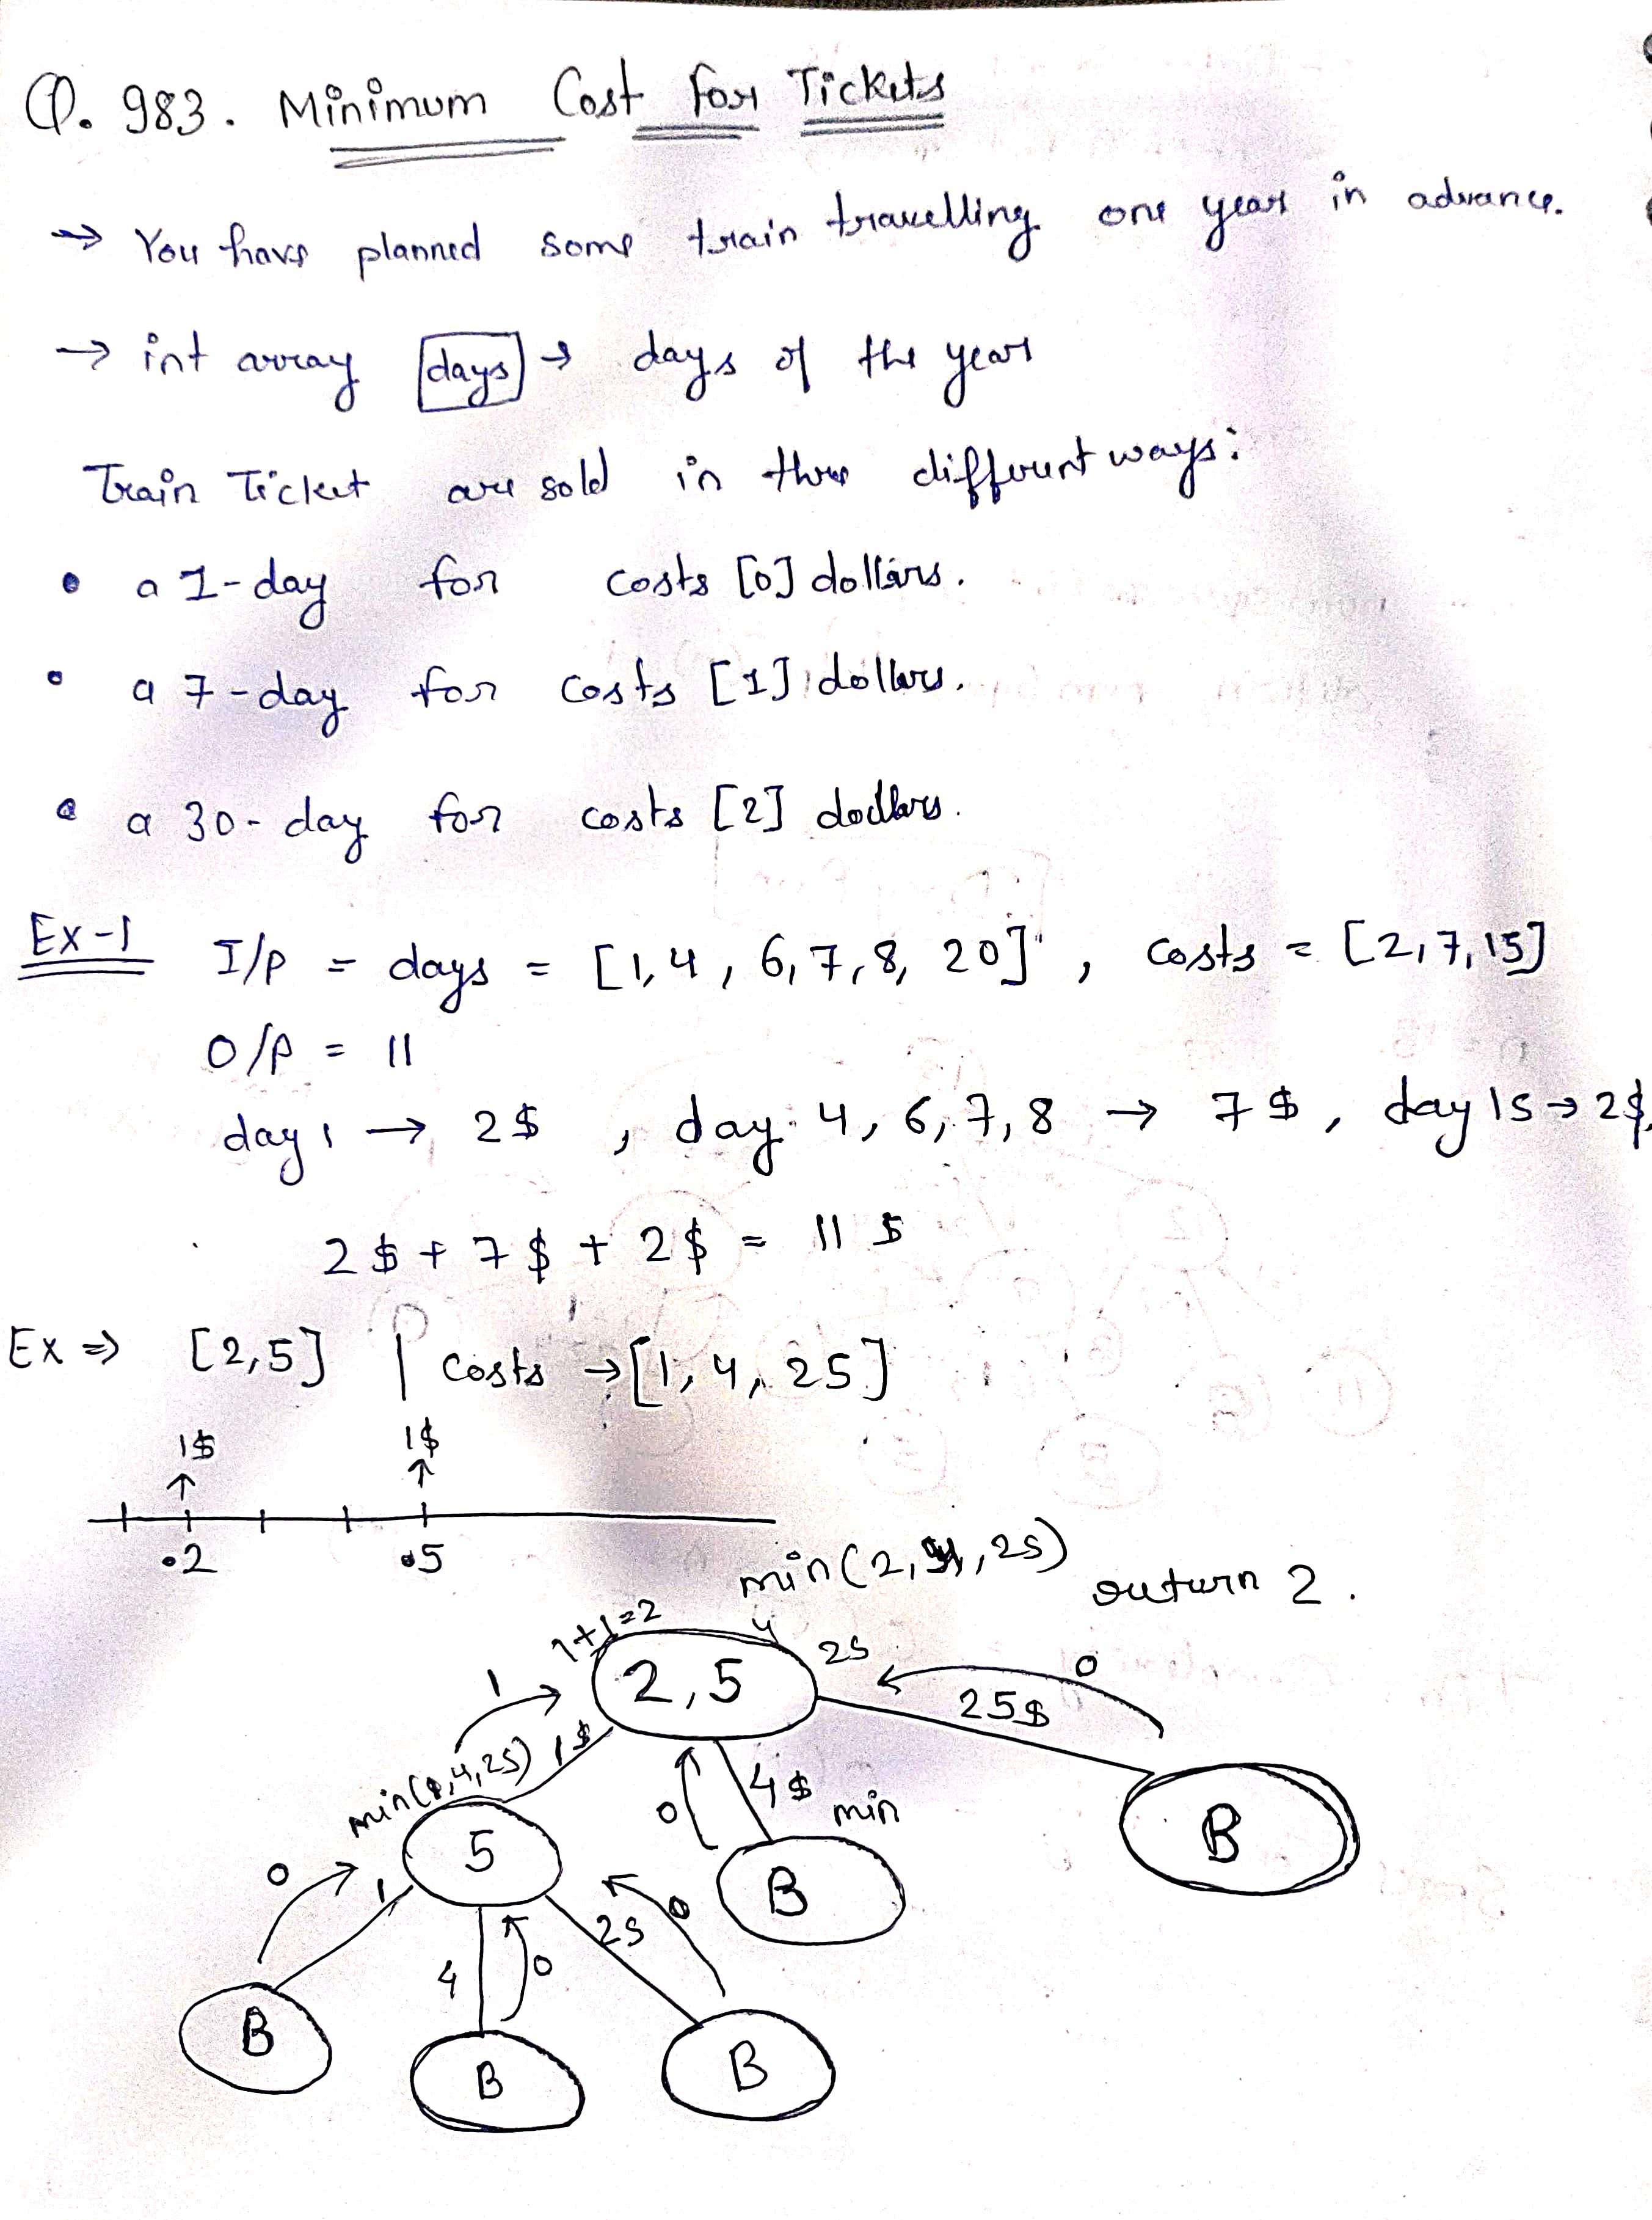 Q. 983. Minimum Cost For Tickets
→ You have planned some train travelling one year in advance.
→ int array [days] → days of the year
Train Ticket are sold in three different ways:
• a 1-day for costs [0] dollars.
• a 7-day for costs [1] dollars.
• a 30-day for costs [2] dollars.
Ex-1 I/P = days = [1,4,6,7,8,20], costs = [2,7,15]
O/P = 11
day 1 → 2$, day 4,6,7,8 → 7$, day 15 → 2$,
2$ + 7$ + 2$ = 11$
Ex ⇒ [2,5] | costs → [1,4,25]
1$ 1$
2 5
min(2,4,25) return 2.
1+1=2 4 25 0
1 2,5 25$
min(1,4,25) 1$ 0 4$ min B
0 1 5 25 0 B
4 0
B B B